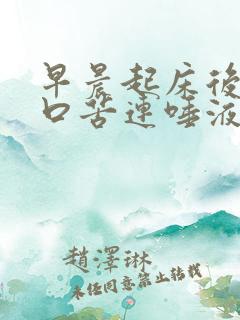 早晨起床後
口苦連唾液
趙澤琳
未經同意禁止轉載